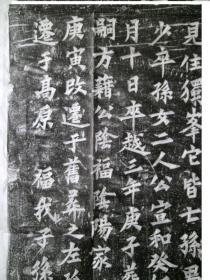 見住獨峯它皆亡孫男
少卒孫女二人公宣和癸
月十日卒越三年庚子
嗣方藉公陰福全陽家
庚寅改遷于舊葬之左
遷于高原 福我子孫